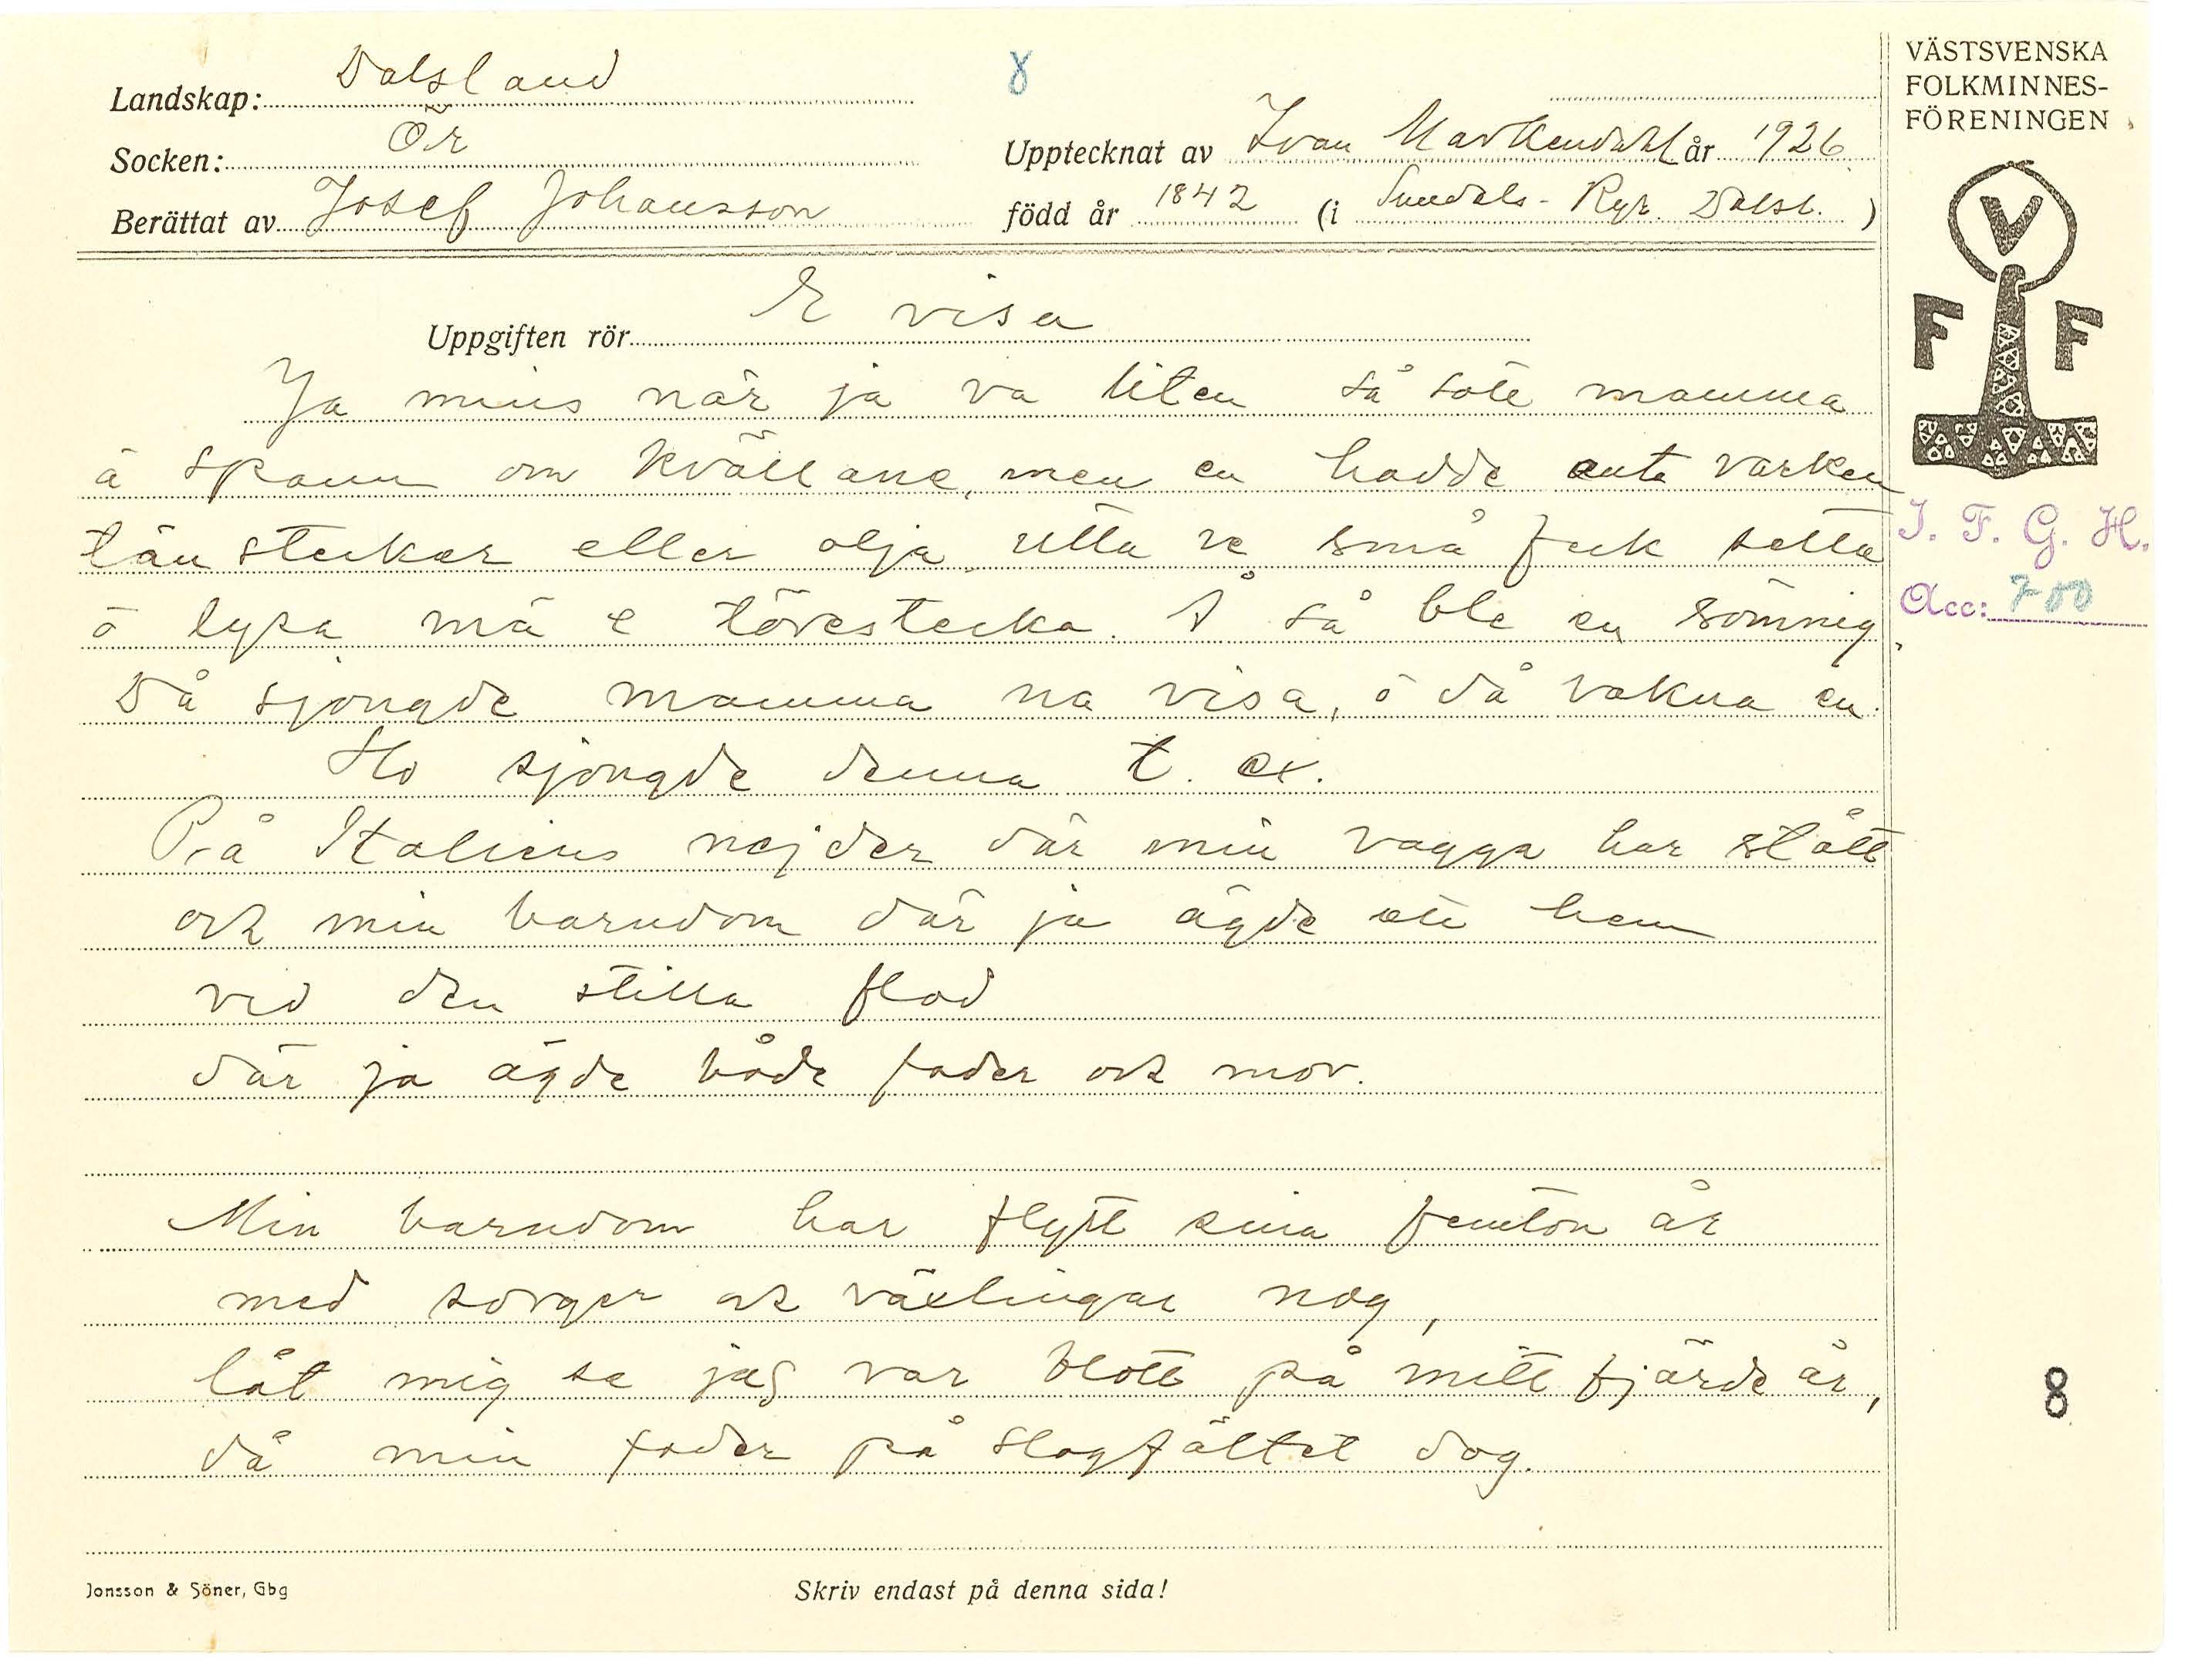 Landskap: Dalsland
8
VÄSTSVENSKA
FOLKMINNES-
FÖRENINGEN
Socken: Ör
Upptecknat av Ivan Markendahl år 1926
Berättat av Josef Johansson
född år 1842 (i Sundals-Ryr. Dalsl. )
V
F F
Uppgiften rör E visa
Ja mins när ja va liten så sote mamma
å spann om kvällane, men en hadde ente varken
tänsteker eller olja, utta ve små feck setta
ö lysa mä e törestecka. Å så ble en sömnig.
Då sjöngde mamma na visa, ö då vakna en.
Ho sjöngde denna t. ex.
På Italiens nejder där min vagga har stått
och min barndom där ja ägde ett hem
vid den stilla flod
där ja ägde både fader och mor.
Min barndom har flytt sina femton år
med sorger och växlingar nog,
låt mig se jag var blott på mitt fjärde år,
då min fader på slagfältet dog.
I. F. G. H.
Acc: 700
8
Jonsson & Söner, Gbg
Skriv endast på denna sida!